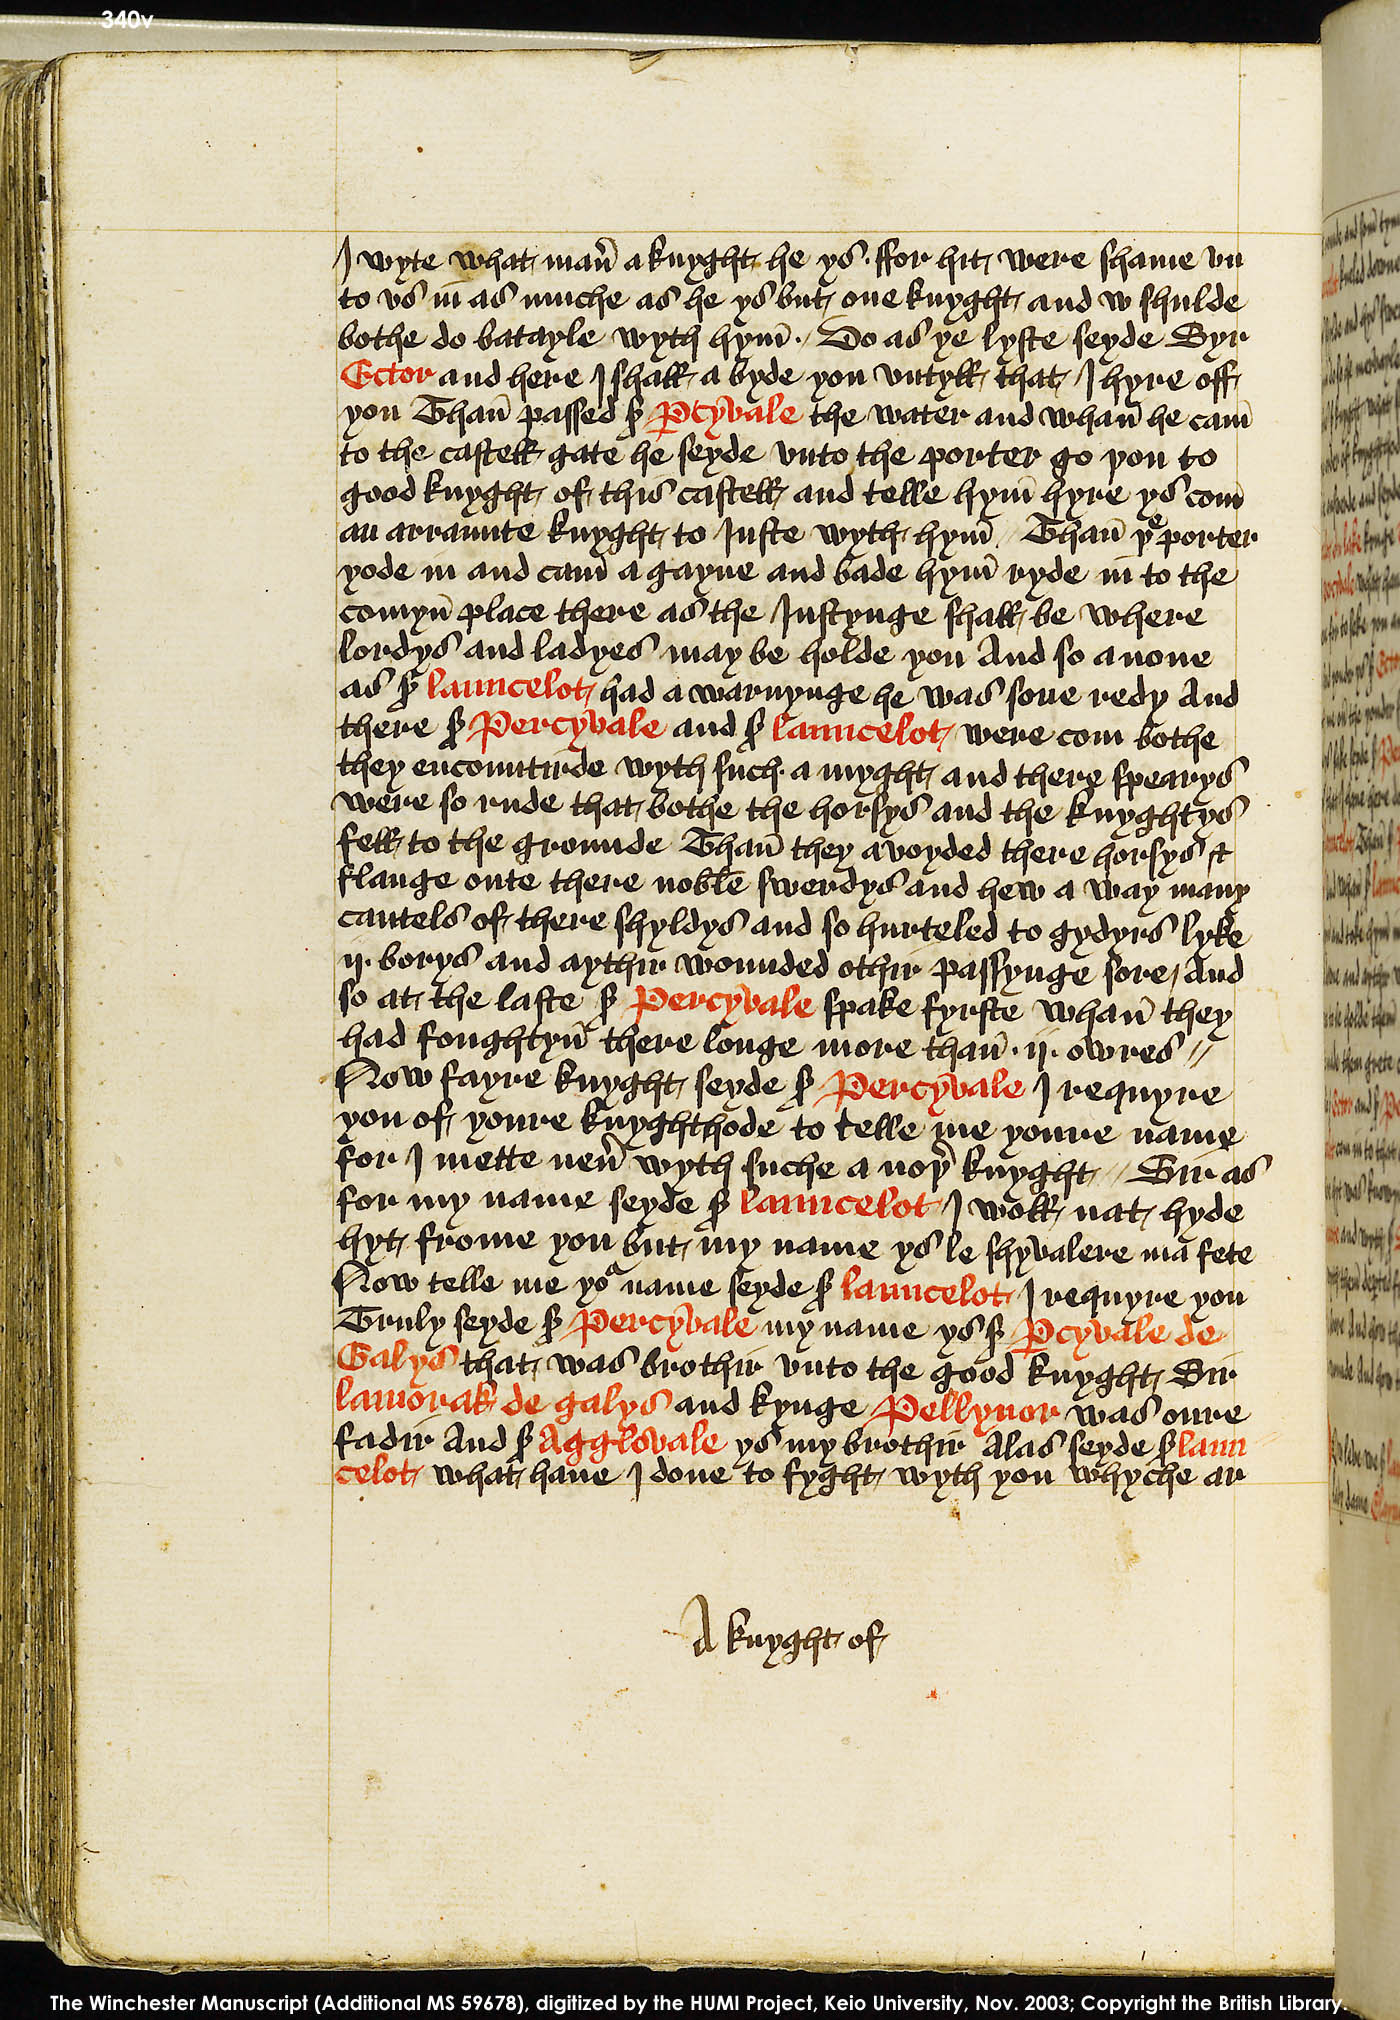 340v
I wyte what man̄ a knyght he ys · ffor hit were shame vn
to vs in as muche as he ys but one knyght and w shulde
bothe do batayle wyth hym̄ · Do as ye lyste seyde Syr
Ector and here I shall a byde you vntyll that I hyre off
you Than̄ passed s̄ P̄cyvale the water and whan̄ he cam̄
to the castell gate he seyde vnto the porter go you to
good knyght of this castell and telle hym̄ hyre ys com̄
an arraunte knyght to Iuste wyth hym̄ / Than̄ yͤ porter
yode in and cam̄ a gayne and bade hym̄ ryde in to the
comyn̄ place there as the Iustynge shall be where
lordys and ladyes may be holde you And so anone
as s̄ launcelot had a warnynge he was sone redy And
there s̄ Percyvale and s̄ launcelot were com bothe
they encountirde wyth such a myght and there spearys
were so rude that bothe the horsys and the knyghtys
fell to the grounde Than̄ they avoyded there horsys &
flange oute there noble swerdys and hew a way many
cantels of there shyldys and so hurteled to gydyrs lyke
ij · borys and aythir wounded othir passynge sore / And
so at the laste s̄ Percyvale spake fyrste whan̄ they
had foughtyn̄ there longe more than̄ · ij · owres //
Now fayre knyght seyde s̄ Percyvale I requyre
you of youre knyghthode to telle me youre name
for I mette nen̄ wyth suche a nop̄ knyght // Sir as
for my name seyde s̄ launcelot I woll nat hyde
hyt frome you but my name ys le shyvalere ma fete
Now telle me yoᵘ name seyde s̄ launcelot I requyre you
Truly seyde s̄ Percyvale my name ys s̄ P̄cyvale de
Galys that was brothir vnto the good knyght Sir
lamorak de galys and kynge Pellynor was oure
fadir And s̄ Agglovale ys my brothir Alas seyde s̄ laun
celot what haue I done to fyght wyth you whyche ar
A knyght of
The Winchester Manuscript (Additional MS 59678), digitized by the HUMI Project, Keio University, Nov. 2003; Copyright the British Library.